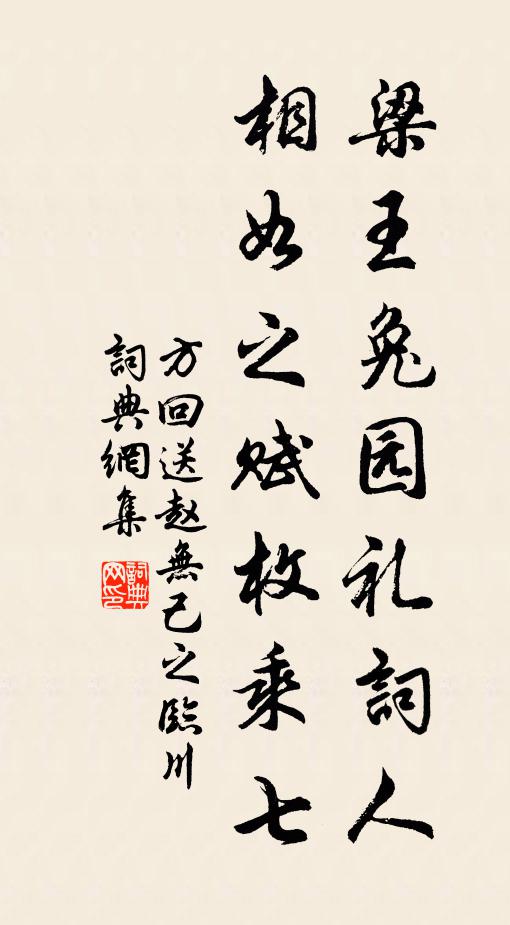 梁王兔园礼詞人
相如之赋枚乘七
方回送赵無己之臨川
詞典網集
詞典网印